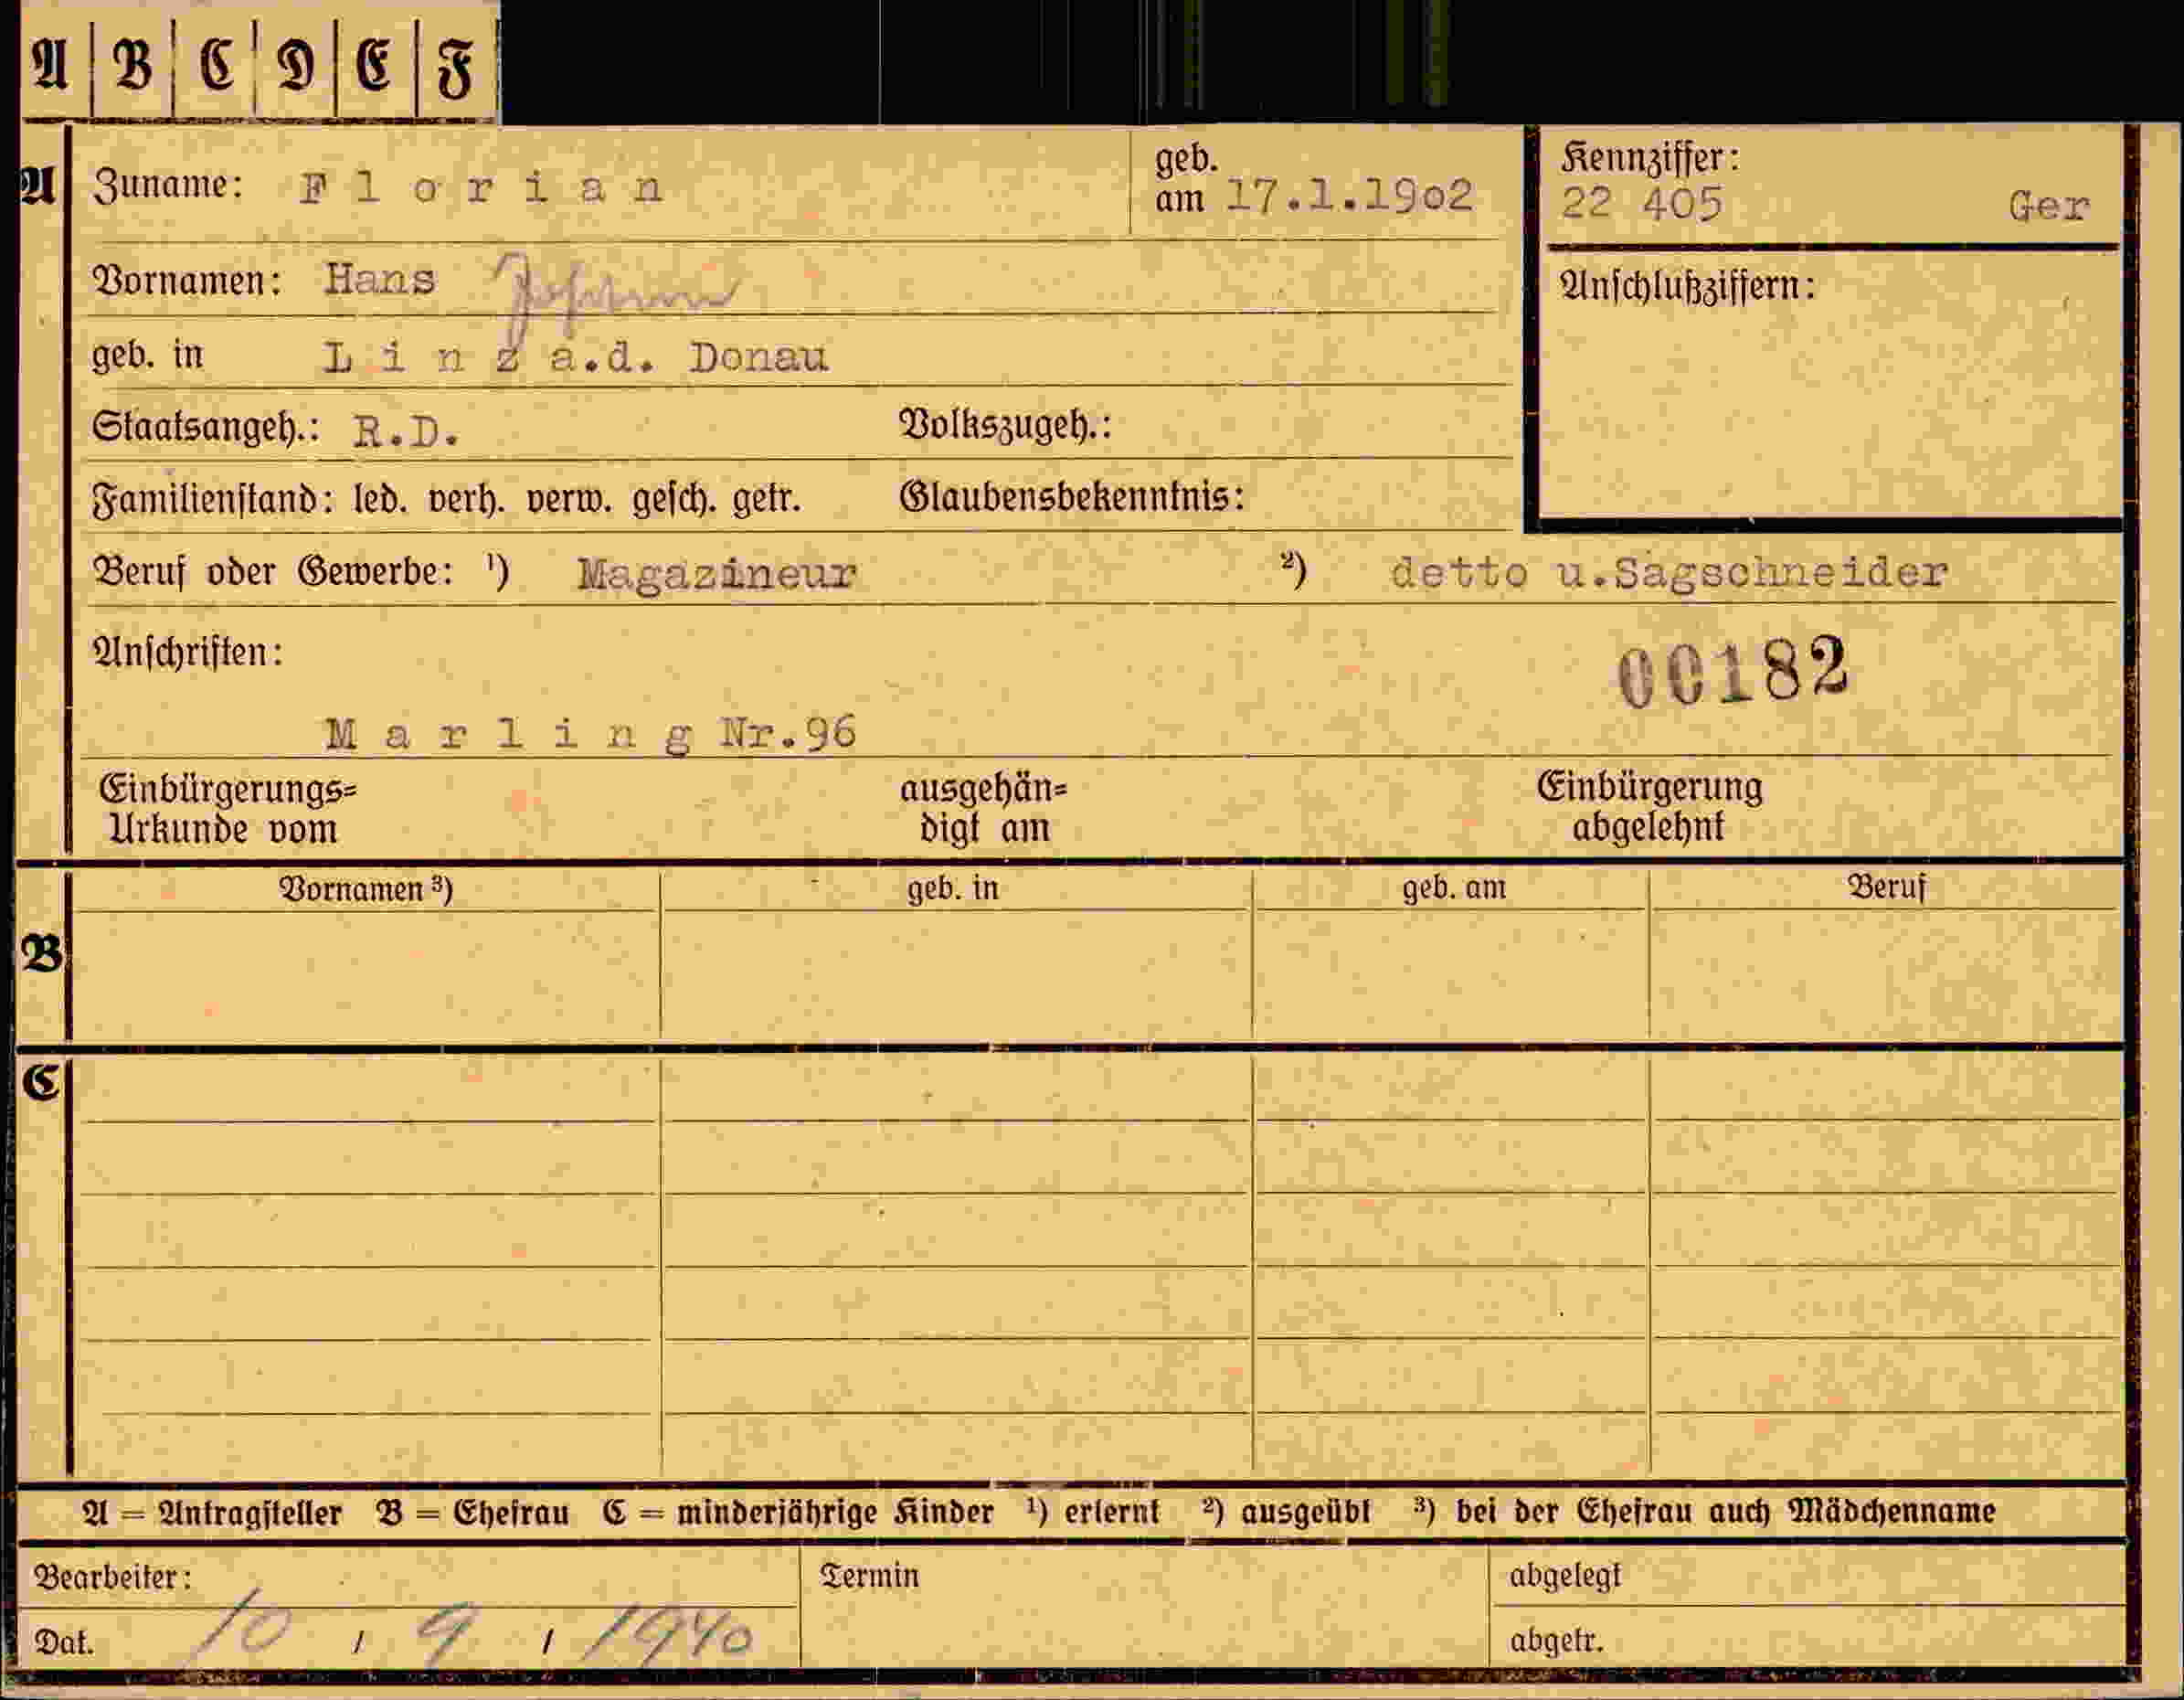 A B C D E F
A Zuname: Florian geb. am 17.1.1902 Kennziffer: 22 405 Ger
Vornamen: Hans Johann Anschlußziffern:
geb. in Linz a.d. Donau
Staatsangeh.: R.D. Volkszugeh.:
Familienstand: led. verh. verw. gesch. getr. Glaubensbekenntnis:
Beruf oder Gewerbe: ¹) Magazineur ²) detto u.Sagschneider
Anschriften: 00182
Marling Nr.96
Einbürgerungs= ausgehän= Einbürgerung
Urkunde vom digt am abgelehnt
Vornamen ³) geb. in geb. am Beruf
B
C
A = Antragsteller B = Ehefrau C = minderjährige Kinder ¹) erlernt ²) ausgeübt ³) bei der Ehefrau auch Mädchenname
Bearbeiter: Termin abgelegt
Dat. 10 / 9 / 1940 abgetr.